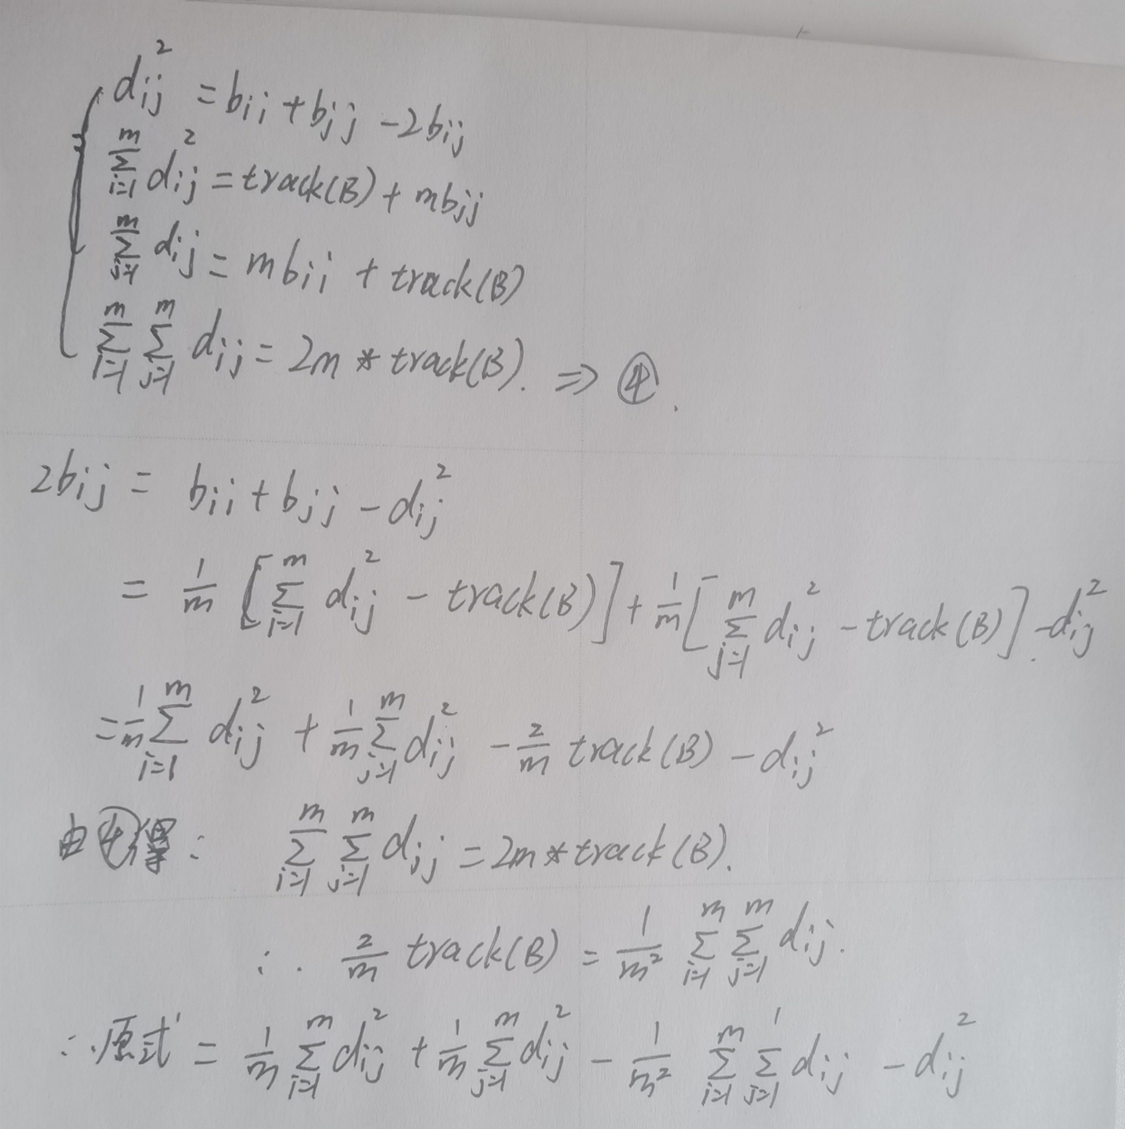 d_{ij}^2 = b_{ii} + b_{jj} - 2b_{ij}
\sum_{i=1}^{m} d_{ij}^2 = track(B) + mb_{jj}
\sum_{j=1}^{m} d_{ij} = mb_{ii} + track(B)
\sum_{i=1}^{m} \sum_{j=1}^{m} d_{ij} = 2m * track(B). ⇒ ④.
2b_{ij} = b_{ii} + b_{jj} - d_{ij}^2
= \frac{1}{m} [\sum_{i=1}^{m} d_{ij}^2 - track(B)] + \frac{1}{m} [\sum_{j=1}^{m} d_{ij}^2 - track(B)] - d_{ij}^2
= \frac{1}{m} \sum_{i=1}^{m} d_{ij}^2 + \frac{1}{m} \sum_{j=1}^{m} d_{ij}^2 - \frac{2}{m} track(B) - d_{ij}^2
由④得: \sum_{i=1}^{m} \sum_{j=1}^{m} d_{ij} = 2m * track(B).
∴ \frac{2}{m} track(B) = \frac{1}{m^2} \sum_{i=1}^{m} \sum_{j=1}^{m} d_{ij}.
∴原式 = \frac{1}{m} \sum_{i=1}^{m} d_{ij}^2 + \frac{1}{m} \sum_{j=1}^{m} d_{ij}^2 - \frac{1}{m^2} \sum_{i=1}^{m} \sum_{j=1}^{1} d_{ij} - d_{ij}^2